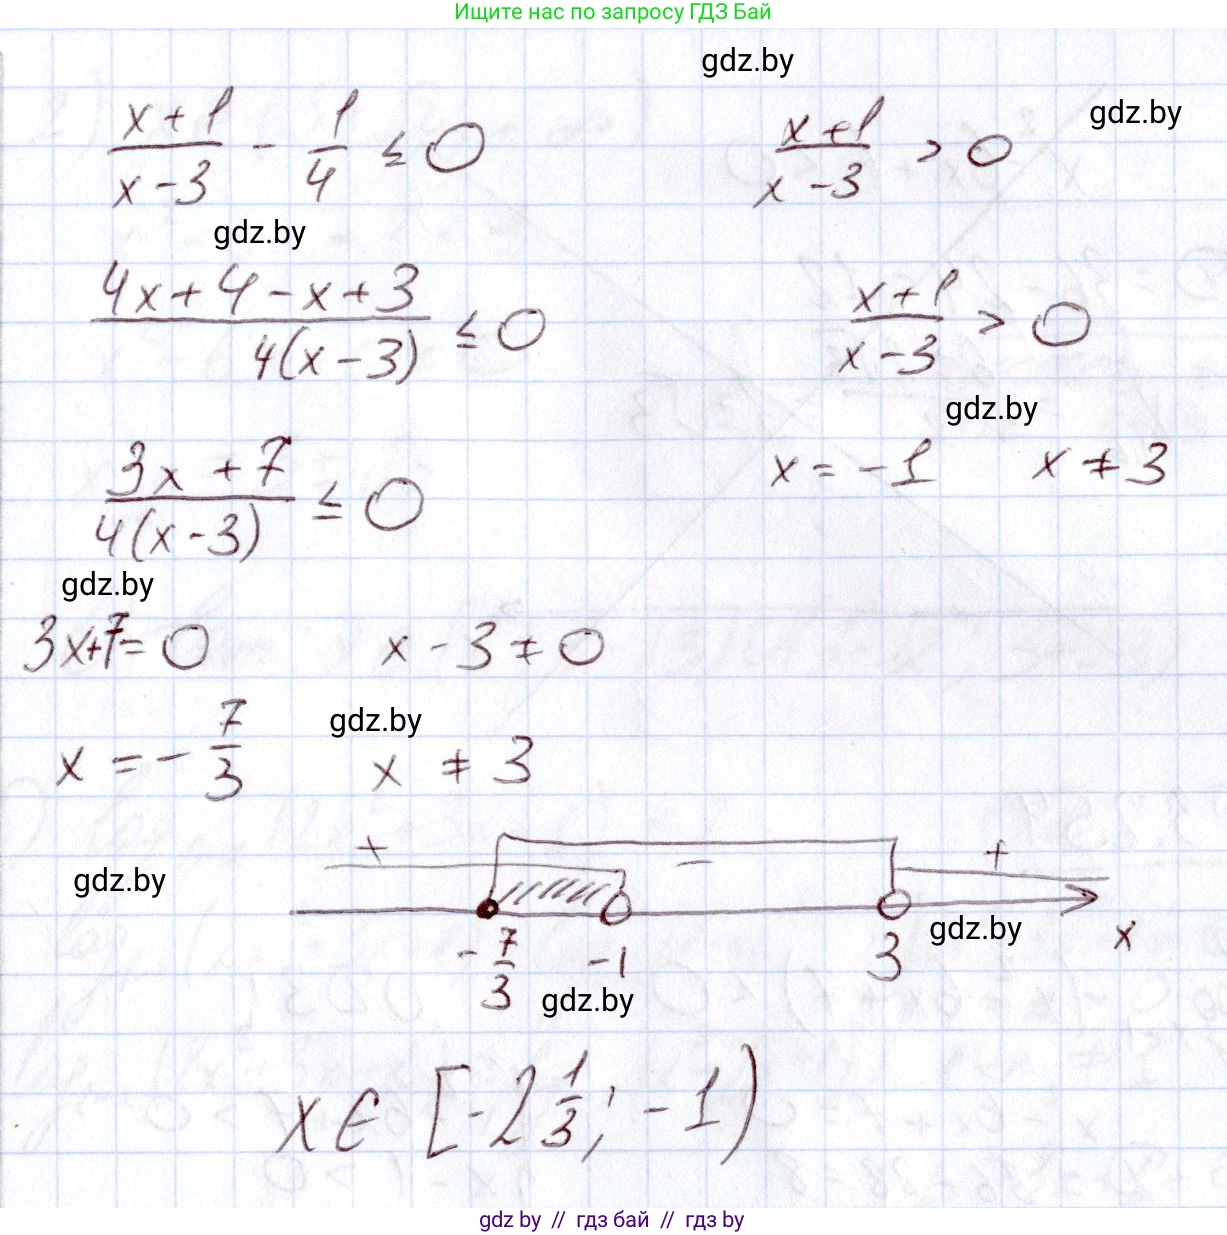 Ищите нас по запросу ГДЗ Бай
gdz.by
gdz.by
(x+1)/(x-3) - 1/4 ≤ 0
(x+1)/(x-3) > 0
gdz.by
(4x+4-x+3)/(4(x-3)) ≤ 0
(x+1)/(x-3) > 0
gdz.by
(3x+7)/(4(x-3)) ≤ 0
x = -1 x ≠ 3
gdz.by
3x+7=0 x-3≠0
gdz.by
x = -7/3 x ≠ 3
+ - +
gdz.by
gdz.by
-7/3 -1 3 x
gdz.by
x ∈ [-2 1/3; -1)
gdz.by // гдз бай // гдз by